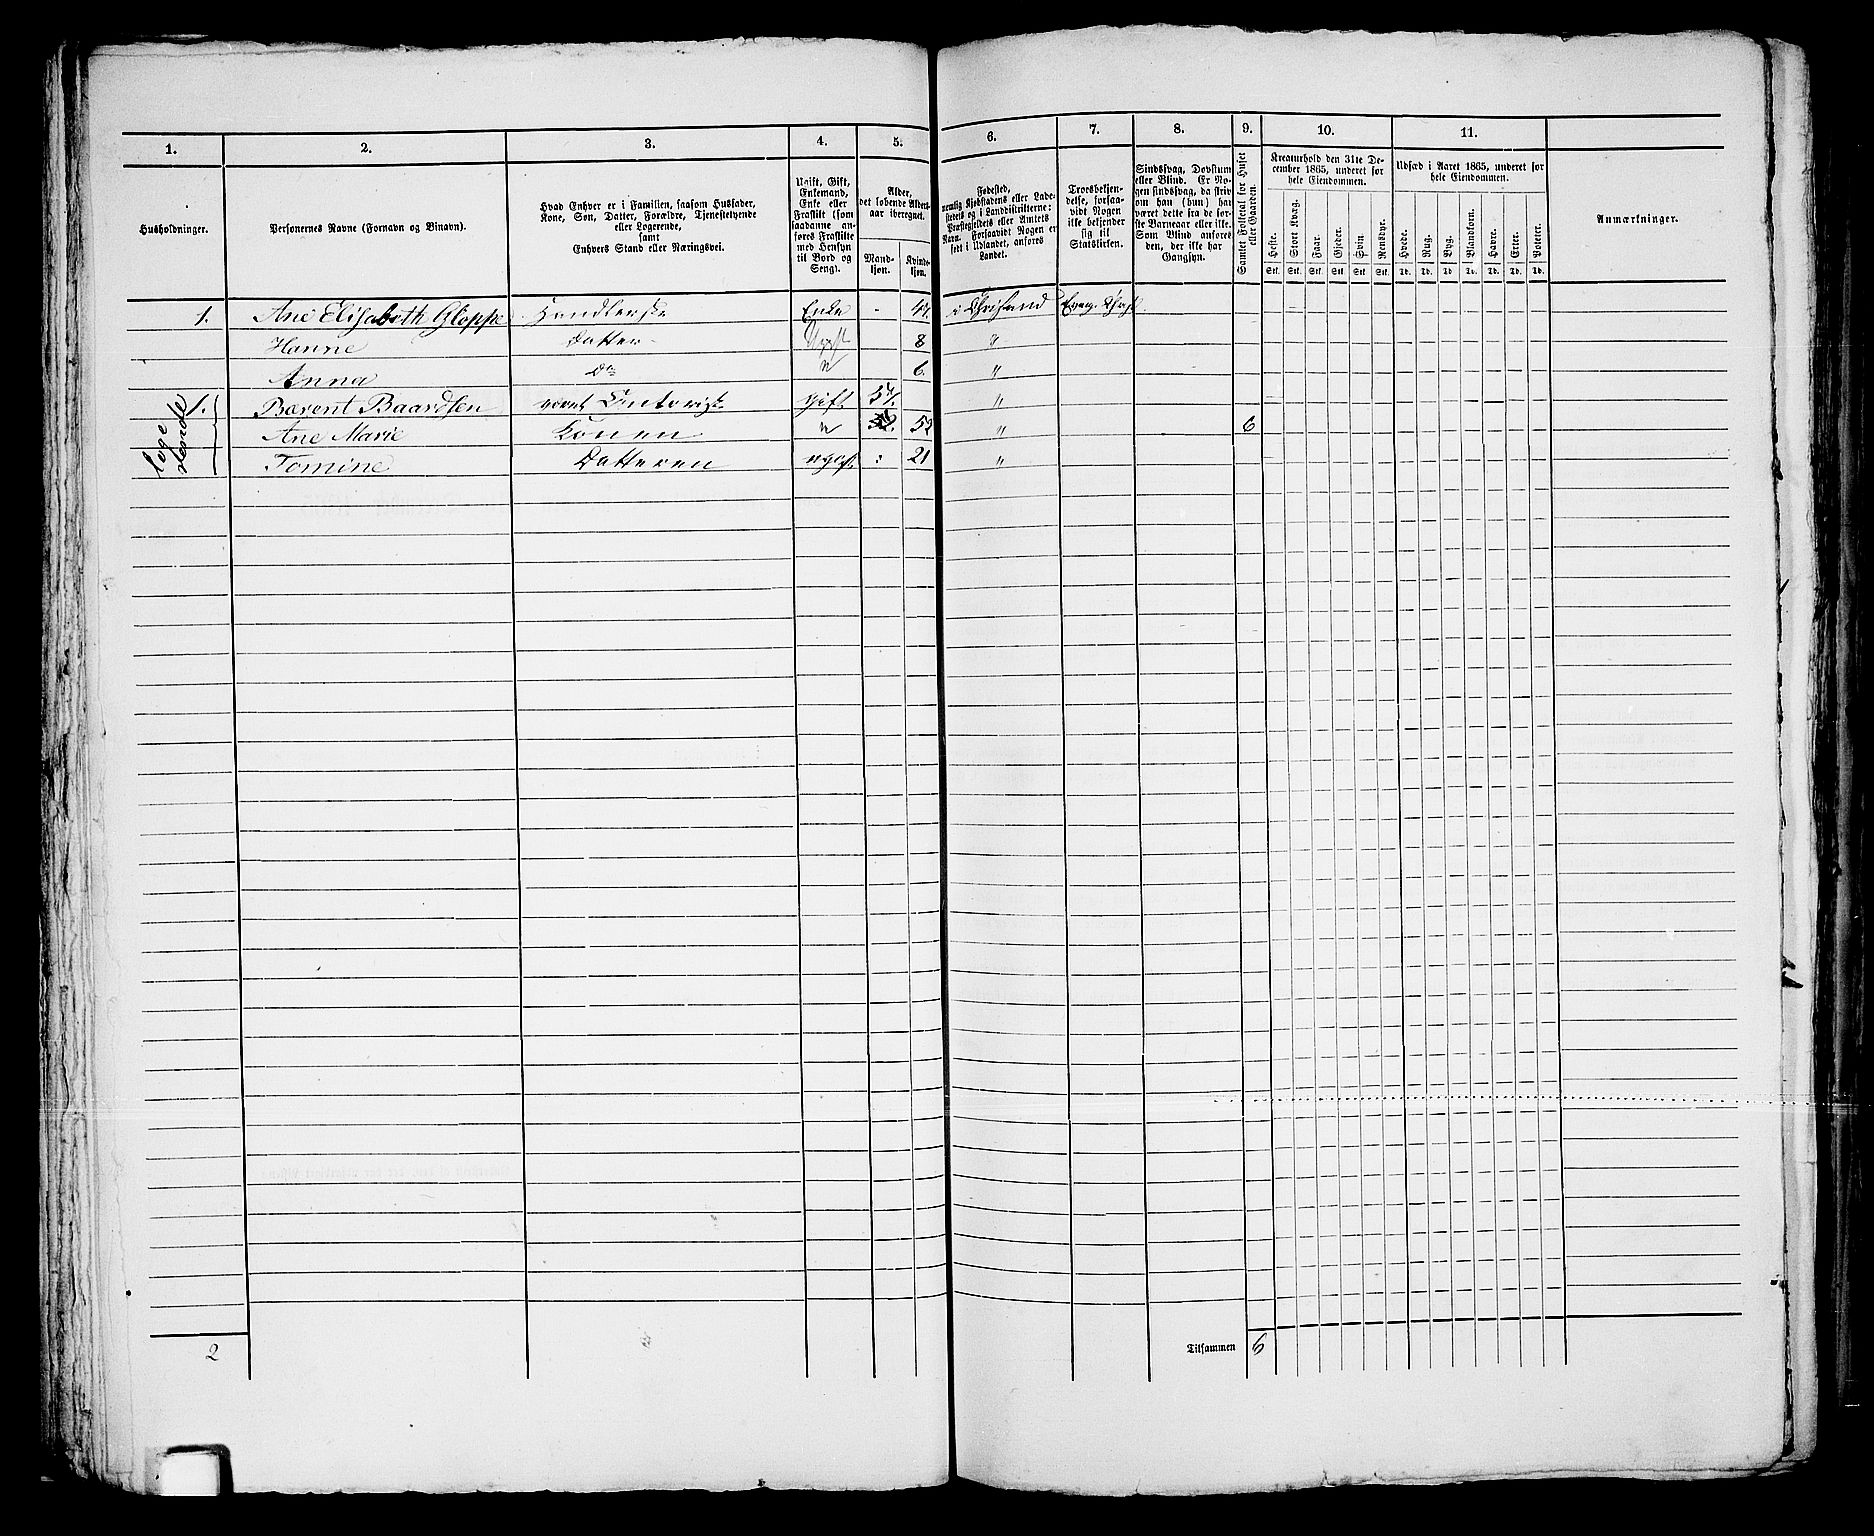 1. 2. 3. 4. 5. 6. 7. 8. 9. 10. 11.
Husholdninger.
Personernes Navne (Fornavn og Binavn).
Hvad Enhver er i Familien, saasom Husfader,
Kone, Søn, Datter, Forældre, Tjenestetyende
eller Logerende,
samt
Enhvers Stand eller Næringsvei.
Ugift, Gift,
Enkemand,
Enke eller
Fraskilt (som
saadanne an-
føres Fraskilte
med Hensyn
til Bord og
Seng).
Alder,
det løbende Alders-
aar iberegnet.
Mand-
kjøn.
Kvinde-
kjøn.
Fødested,
nemlig Kjøbstadens eller Lade-
stedets og i Landdistrikterne:
Præstegjeldets eller Amtets
Navn. Forsaavidt Nogen er
født i Udlandet, anføres
Landet.
Troesbekjen-
delse, forsaa-
vidt Nogen
ikke bekjender
sig til
Statskirken.
Sindssvag, Døvstum
eller Blind. Er No-
gen sindssvag, da skriv
om han (hun) har
været det fra de før-
ste Barneaar eller ikke.
Som Blind anføres
den, der ikke har
Gangsyn.
Samlet Folketal for Huset
eller Gaarden.
Kreaturhold den 31te De-
cember 1865, underet før
hele Eiendommen.
Heste. Stort Kvæg. Faar. Gjeder. Svin. Rensdyr.
Stk. Stk. Stk. Stk. Stk. Stk.
Udsæd i Aaret 1865, underet før
hele Eiendommen.
Hvede. Rug. Byg. Blandkorn. Havre. Erter. Poteter.
Td. Td. Td. Td. Td. Td. Td.
Anmærkninger.
1. Ane Elisabeth Gloppe Handlerske Enke - 47.
Hanne Datter Ugift 8 "
Anna Do " 6. "
Logerende 1. Bærent Baardsen gift 54. "
Ane Marie Konen " 52 " 6
Tomine Datteren ugift : 21 "
2 Tilsammen 6